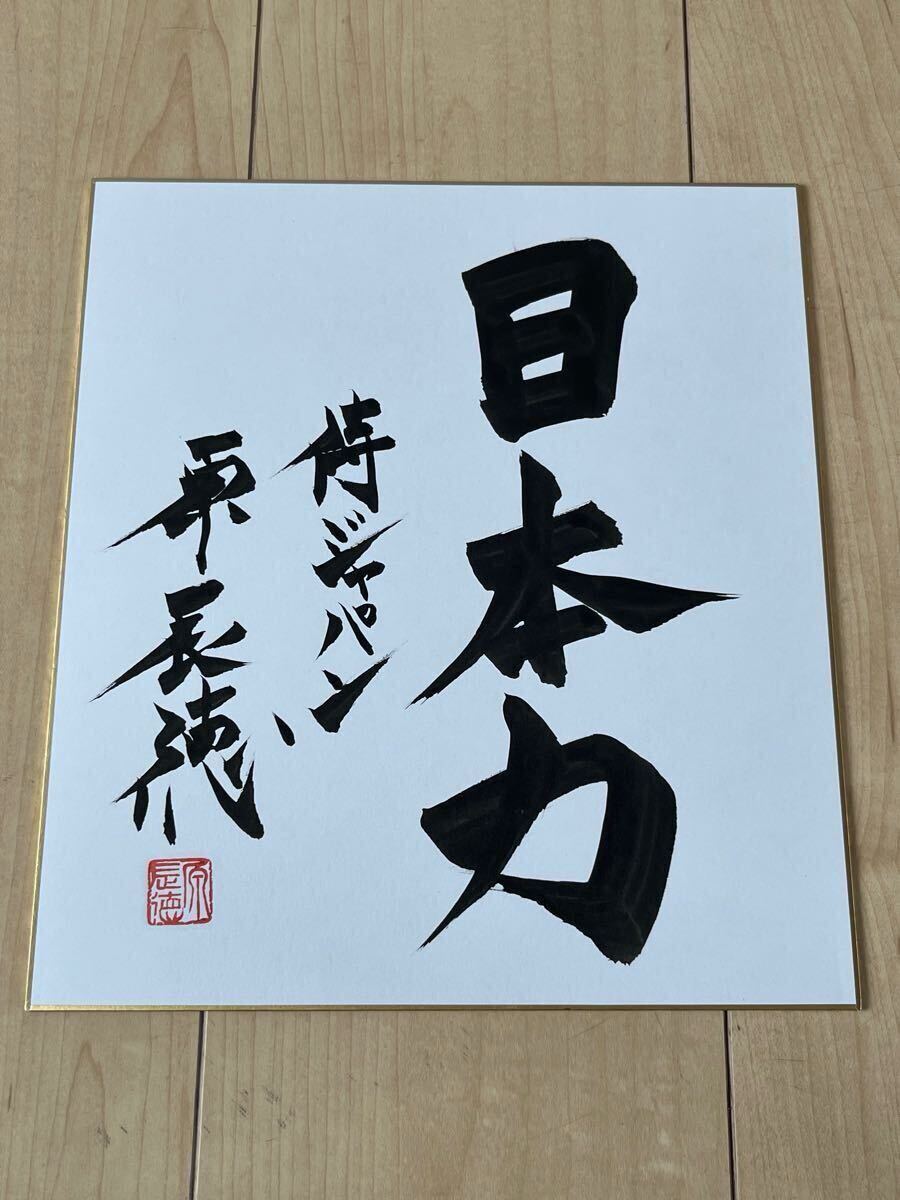 日本力
侍ジャパン
原辰徳
原
辰徳